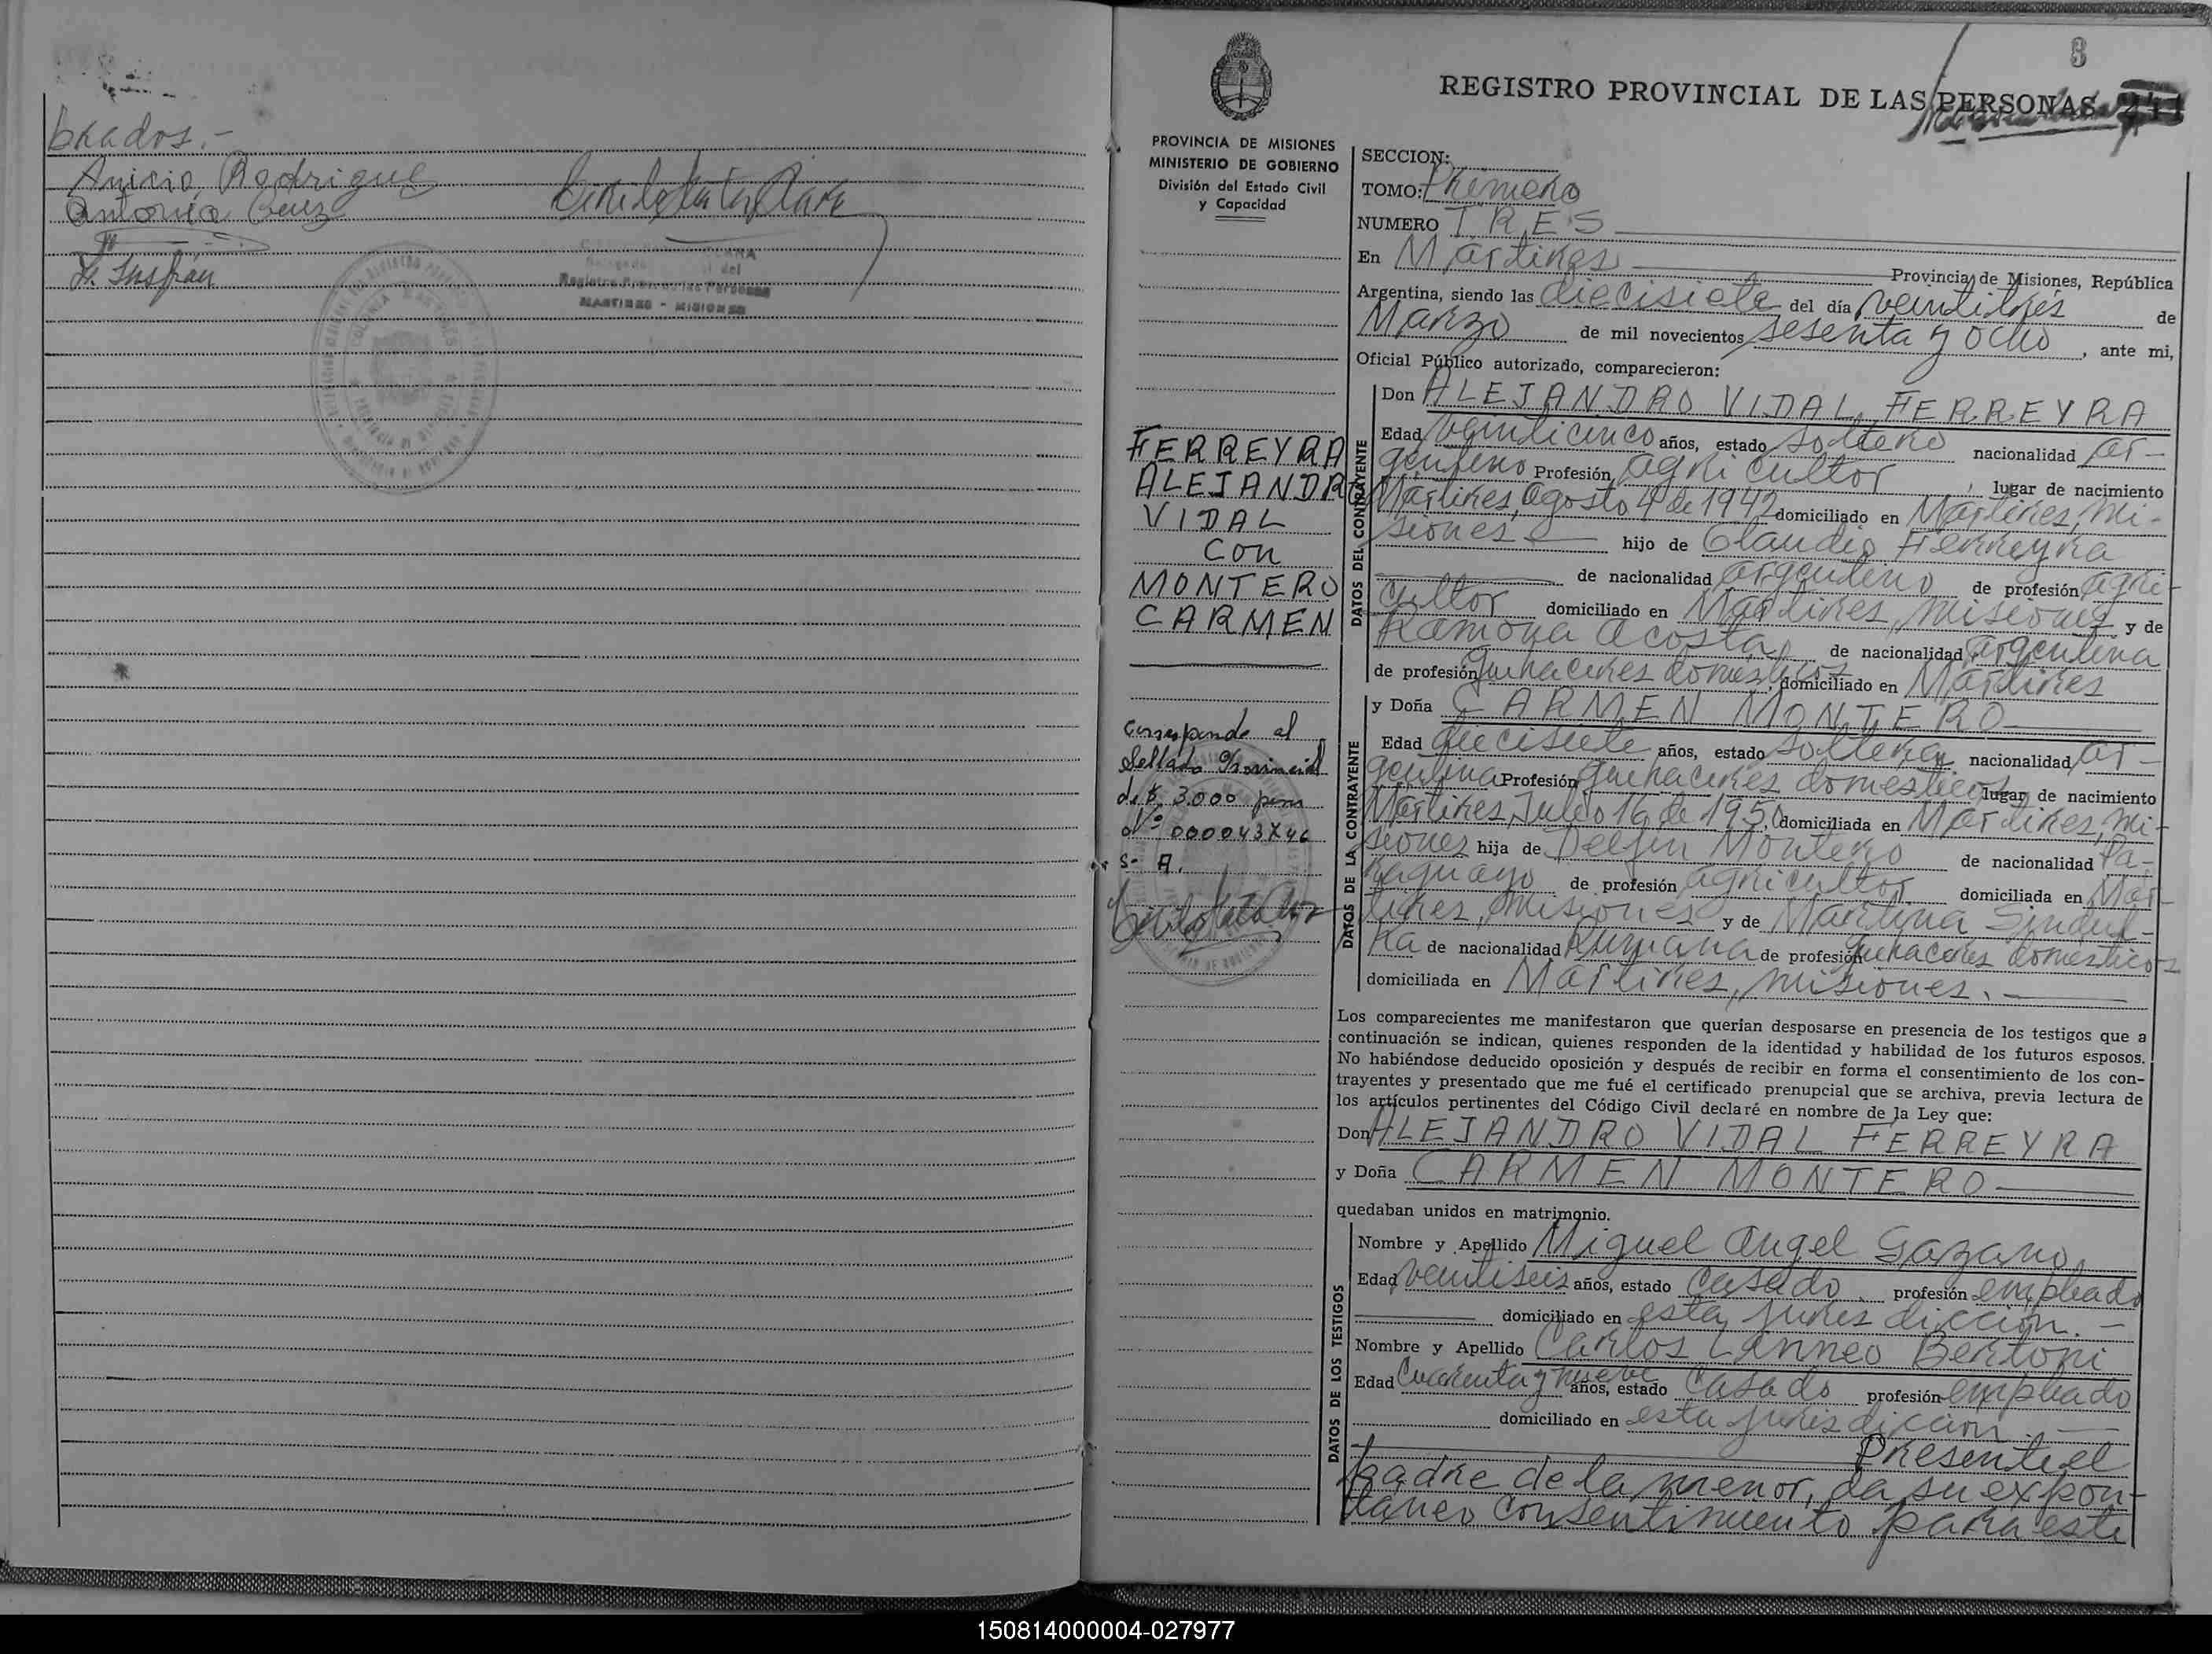 brados.-
Anicio Rodrigue
Antonia
MARTIRES - MISIONES
8
REGISTRO PROVINCIAL DE LAS PERSONAS
PROVINCIA DE MISIONES
MINISTERIO DE GOBIERNO
División del Estado Civil
y Capacidad
FERREYRA
ALEJANDRO
VIDAL
con
MONTERO
CARMEN
Corresponde al
Sellado Provincial
de $ 3.000 pesos
Nº
S- A.
SECCION:
TOMO: Primero
NUMERO TRES
En Mártires Provincia de Misiones, República
Argentina, siendo las diecisiete del día veintitrés de
Marzo de mil novecientos sesenta y ocho, ante mi,
Oficial Público autorizado, comparecieron:
DATOS DEL CONTRAYENTE
Don ALEJANDRO VIDAL FERREYRA
Edad veinticinco años, estado soltero nacionalidad ar-
gentino Profesión agricultor, lugar de nacimiento
Mártires, Agosto 4 de 1942 domiciliado en Mártires, Mi-
siones hijo de Claudio Ferreyra
de nacionalidad argentino de profesión agri-
cultor domiciliado en Mártires, Misiones y de
Ramona Acosta de nacionalidad argentina
de profesión quehaceres domésticos, domiciliado en Mártires
DATOS DE LA CONTRAYENTE
y Doña CARMEN MONTERO
Edad diecisiete años, estado soltera nacionalidad ar-
gentina Profesión quehaceres domesticos lugar de nacimiento
Mártires, Julio 16 de 1950, domiciliada en Mártires, Mi-
siones hija de Delfin Montero de nacionalidad Pa-
raguayo de profesión agricultor domiciliada en Már-
tires, Misiones y de Martina
ra de nacionalidad Rumana de profesión quehaceres domesticos
domiciliada en Mártires, Misiones.
Los comparecientes me manifestaron que querían desposarse en presencia de los testigos que a
continuación se indican, quienes responden de la identidad y habilidad de los futuros esposos.
No habiéndose deducido oposición y después de recibir en forma el consentimiento de los con-
trayentes y presentado que me fué el certificado prenupcial que se archiva, previa lectura de
los artículos pertinentes del Código Civil declaré en nombre de la Ley que:
Don ALEJANDRO VIDAL FERREYRA
y Doña CARMEN MONTERO
quedaban unidos en matrimonio.
DATOS DE LOS TESTIGOS
Nombre y Apellido Miguel Angel Gazano
Edad veintiseis años, estado Casado profesión empleado
domiciliado en esta jurisdicción.-
Nombre y Apellido Carlos Linneo Bertoni
Edad Cuarenta y nueve años, estado Casado profesión empleado
domiciliado en esta jurisdicción.
Presente el
padre de la menor, da su expon-
táneo consentimiento para este
150814000004-027977